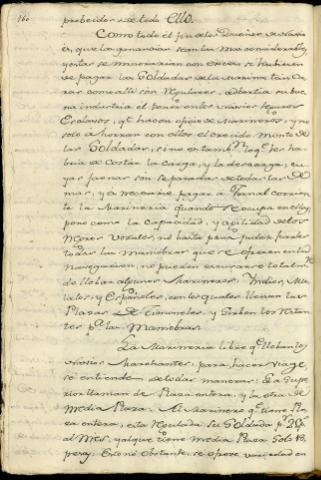 160
probecidos de todo Ello.
Como todo el fin de los Dueños de Navíos
es, que las ganancias sean las mas considerables,
y estas se minorarian con exceso si hubiesen
de pagar las Soldadas de la Marina tan Ca-
ras como allí son Regulares, advertia su bue-
na industria el poner en los Navíos
Esclavos, qe. hacen oficio de Marineros, y no
solo ahorran con ellos el crecido monto de
las Soldadas, sino en tambn. lo qe. les ha-
bria de costar la Carga, y la descarga, cu-
yas faenas son separadas de todas las de
mar, y es necesario pagar à Jornal corrien-
te la Marineria quando se ocupa en ello;
pero como la Capacidad, y agilidad de los
Negros no basta para poder
todas las maniobras que se ofrecen en la
Navegacion, no pueden escusarse totalmte.
de llebar algunos Marineros Indios, Mu-
latos, y Españoles, con los quales llenan las
Plazas de Timoneles, y Goben los
pa. las Maniobras.
La Marineria libre qe. llebanlos
Navios Marchantes, para hacer viage,
se entiende de dos maneras: La supe-
rior llaman de Plaza entera, y la otra de
media Plaza. Al Marinero qe. tiene Pla-
za entera, esta Regulada su Soldada pr. 20 ps.
al Mes, y al que tiene media Plaza Solo 14
pesos; Esto no obstante, se ofrece variedad en